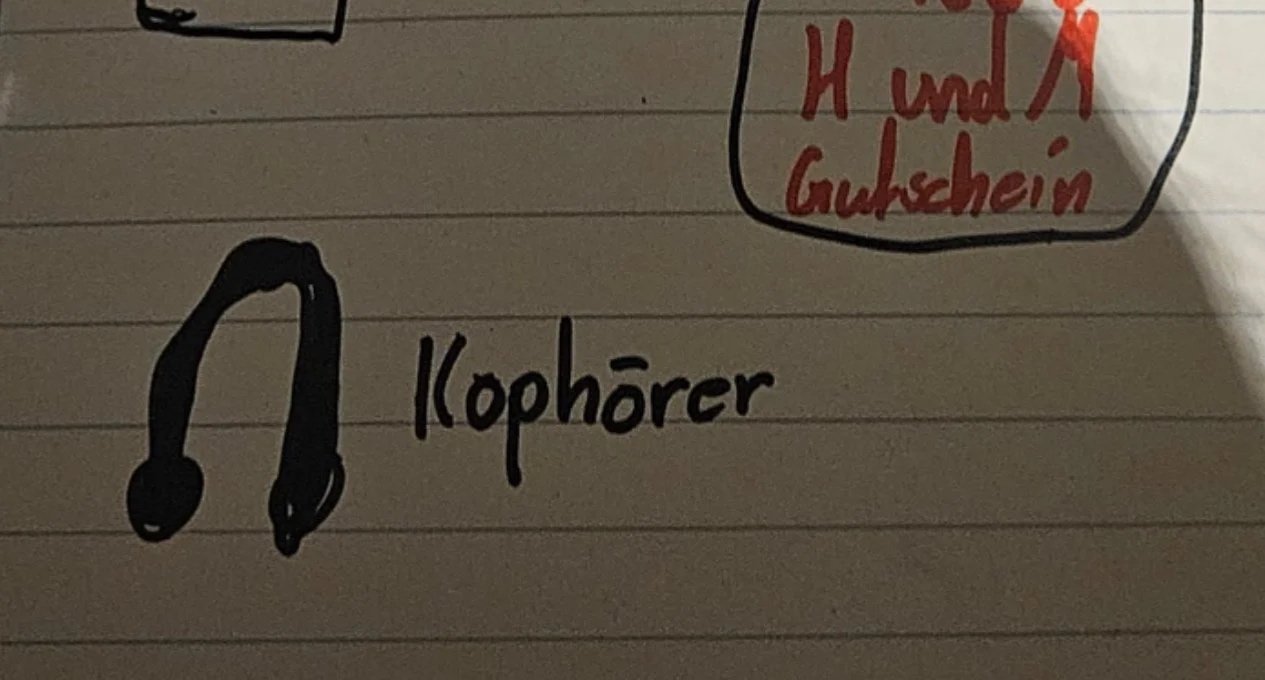 H und M
Gutschein
Kophōrer